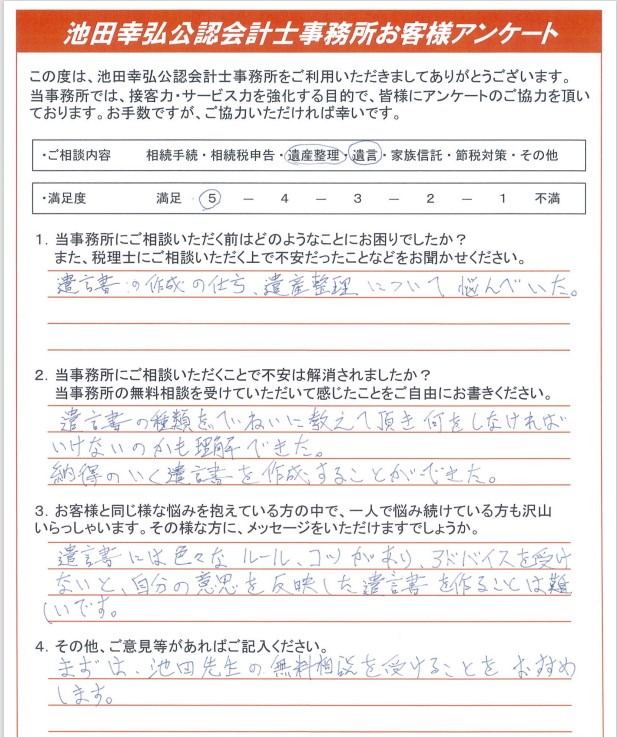 池田幸弘公認会計士事務所お客様アンケート
この度は、池田幸弘公認会計士事務所をご利用いただきましてありがとうございます。
当事務所では、接客力・サービス力を強化する目的で、皆様にアンケートのご協力を頂い
ております。お手数ですが、ご協力いただければ幸いです。
・ご相談内容 相続手続・相続税申告・遺産整理・遺言・家族信託・節税対策・その他
・満足度 満足 5 － 4 － 3 － 2 － 1 不満
1．当事務所にご相談いただく前はどのようなことにお困りでしたか？
また、税理士にご相談いただく上で不安だったことなどをお聞かせください。
遺言書の作成の仕方、遺産整理について悩んでいた。
2．当事務所にご相談いただくことで不安は解消されましたか？
当事務所の無料相談を受けていただいて感じたことをご自由にお書きください。
遺言書の種類をていねいに教えて頂き何をしなければ
いけないのかも理解できた。
納得のいく遺言書を作成することができた。
3．お客様と同じ様な悩みを抱えている方の中で、一人で悩み続けている方も沢山
いらっしゃいます。その様な方に、メッセージをいただけますでしょうか。
遺言書には色々なルール、コツがあり、アドバイスを受け
ないと、自分の意思を反映した遺言書を作ることは難
しいです。
4．その他、ご意見等があればご記入ください。
まずは、池田先生の無料相談を受けることをおすすめ
します。